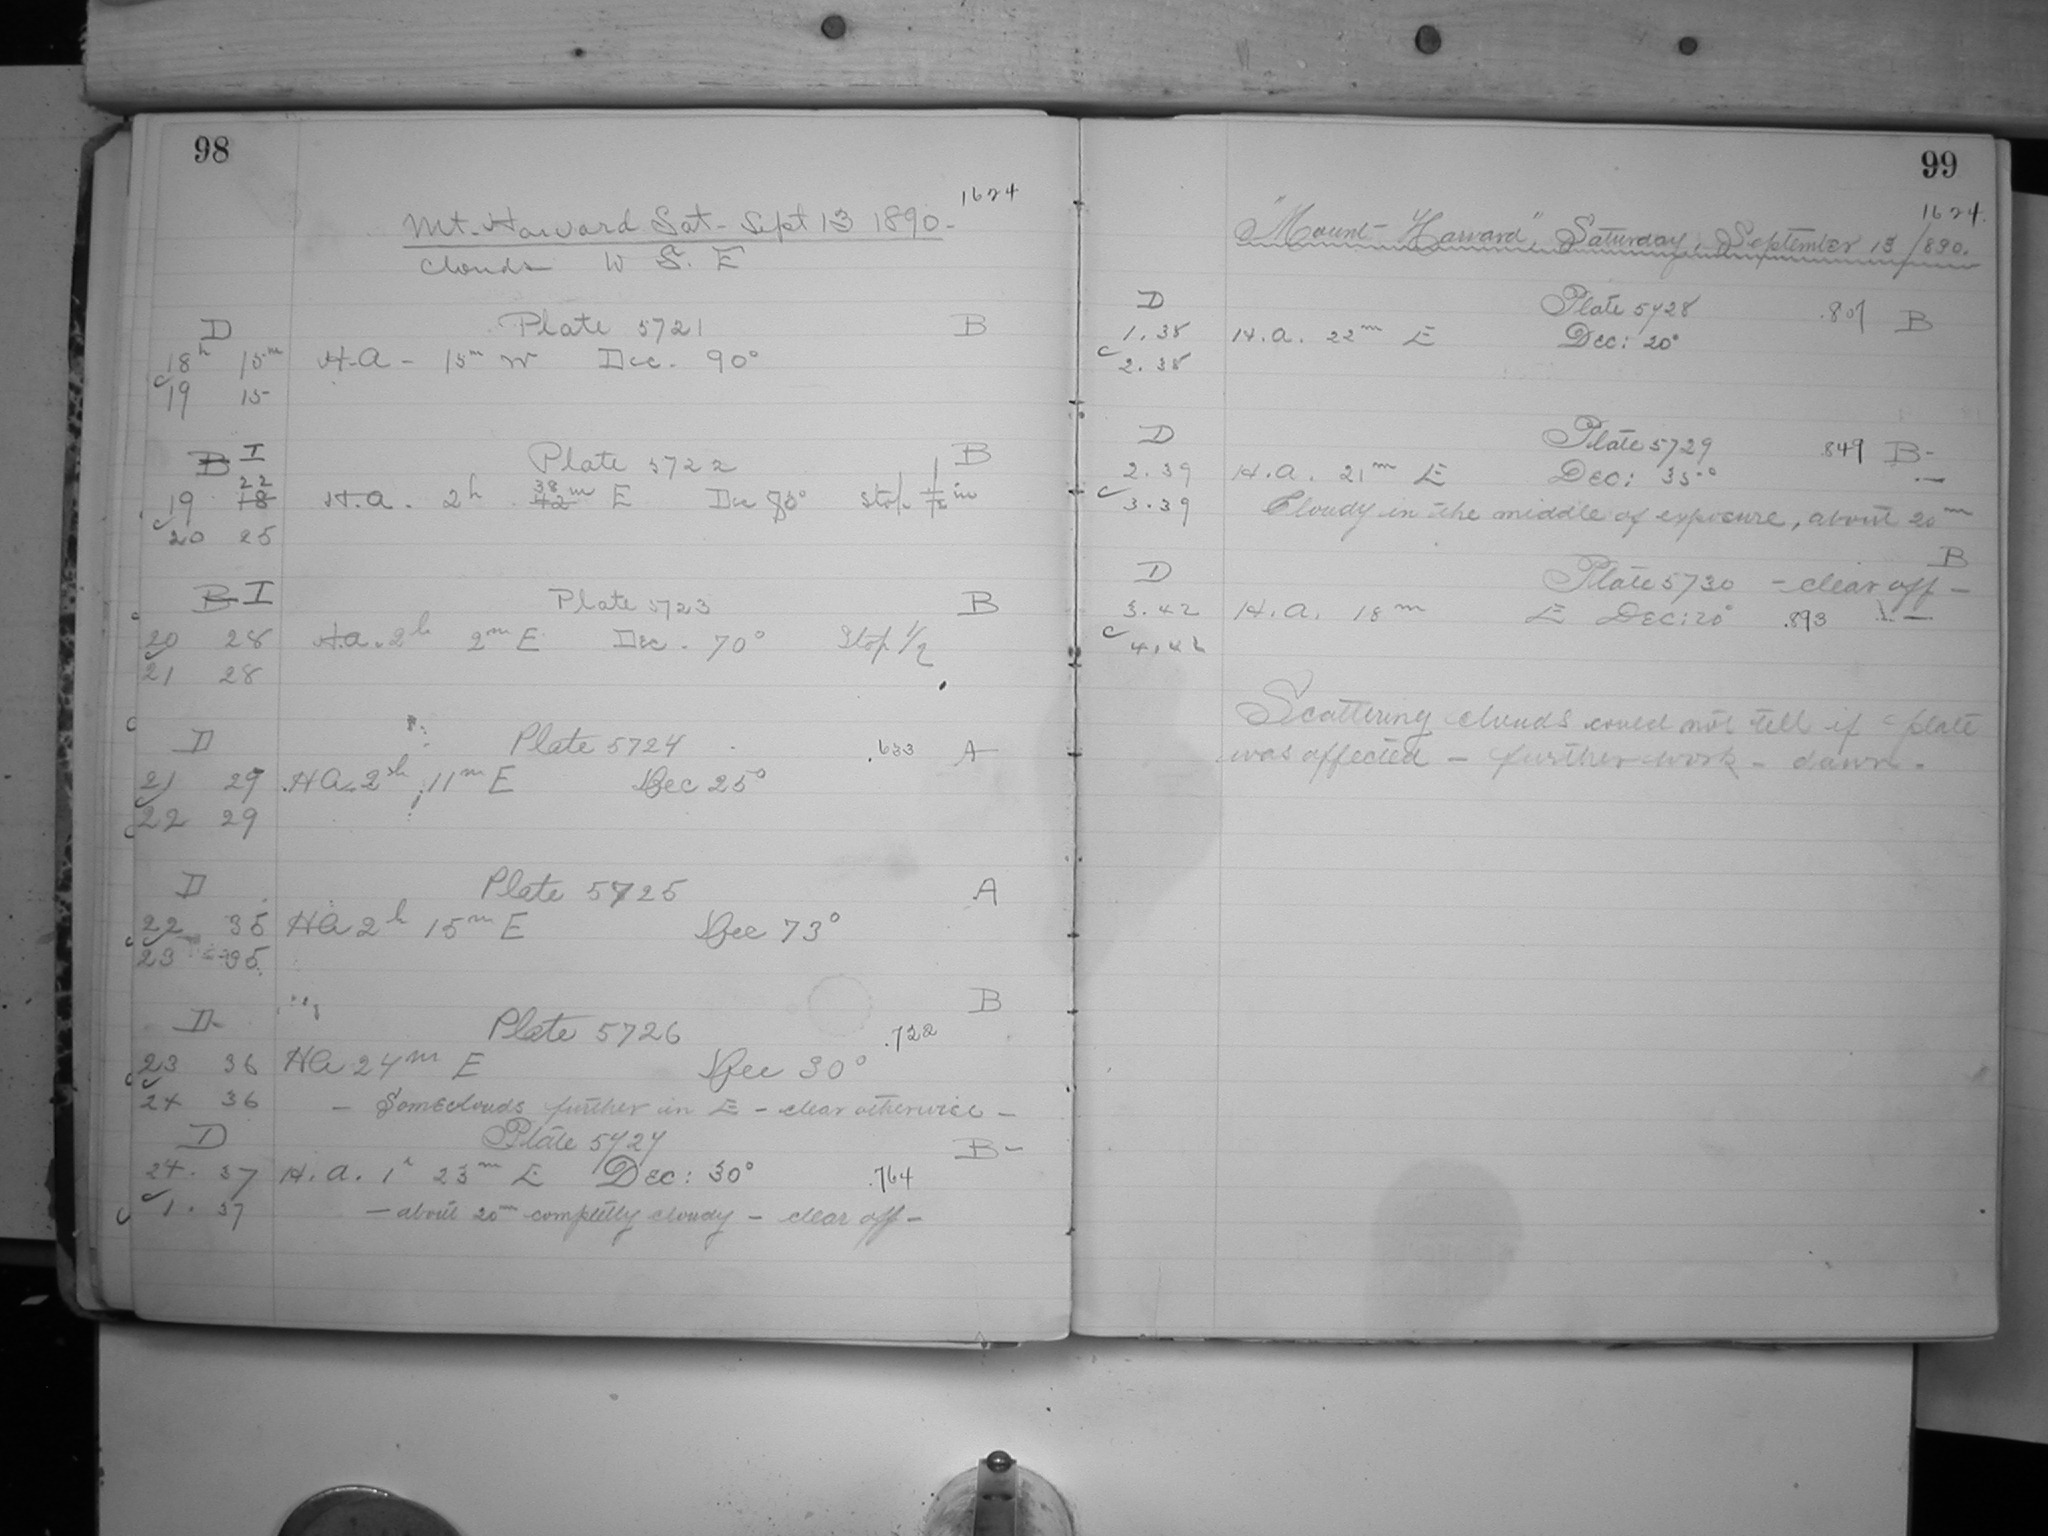 98
1624
Mt. Harvard Sat - Sept 13 1890 -
Clouds W S. E
D Plate 5721 B
18h 15m H.A - 15m W Dec. 90°
19 15
B I Plate 5722 B
22 38
19 18 H.a. 2h 42m E Dec 80° Stop in
20 25
B I Plate 5723 B
20 28 H.a. 2h 2m E Dec. 70° Stop 1/2
21 28
D Plate 5724 .633 A
21 29 HA. 2h 11m E Dec 25°
22 29
D Plate 5725 A
22 35 HA 2h 15m E Dec 73°
23 35
B
D Plate 5726 .722
23 36 HA 24m E Dec 30°
24 36 - Some clouds further in E - clear otherwise -
D Plate 5727 B -
24. 37 H.a. 1h 23m E Dec: 30° .764
1. 37 - about 20m completly cloudy - clear off -
99
1624.
"Mount-Harvard", Saturday, September 13 1890.
D Plate 5728 .807 B
1.38 H.a. 22m E Dec: 20°
2.38
D Plate 5729 849 B -
2.39 H.a. 21m E Dec: 35°
3.39 Cloudy in the middle of exposure, about 20m
B
D Plate 5730 - clear off -
3.42 H.a. 18m E Dec: 20° .893
4.42
Scattering clouds could not tell if plate
was affected - further work - dawn -